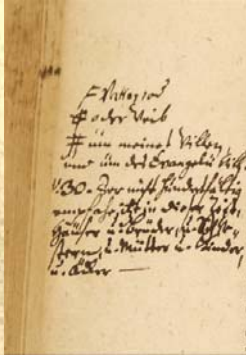 # oder Weib
# um meinet Willen,
und um des Evangelii Will.
V. 30. Der nicht hundertfältig
empfahe, jetzt in dieser Zeit,
Häuser u. Brüder, u. Schwe-
stern, u. Mütter u. Kinder,
u. Äcker —